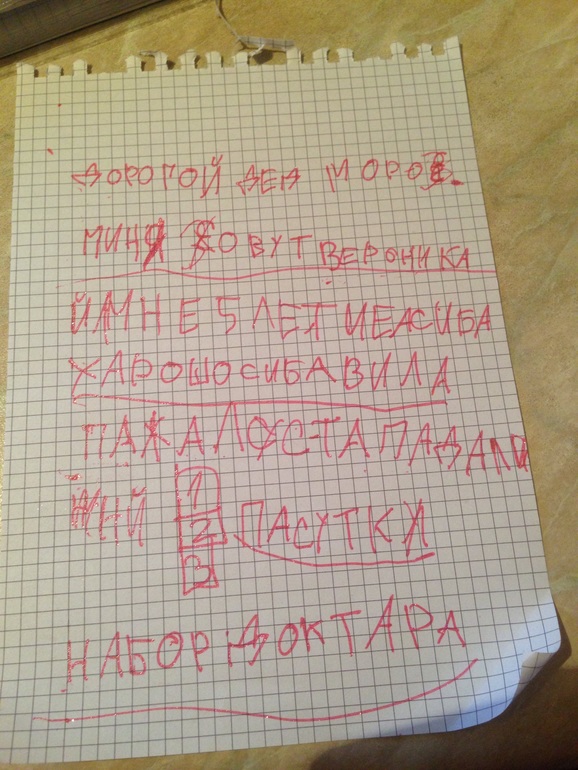 ДОРОГОЙ ДЕД МОРОЗ.
МИНЯ ЗОВУТ ВЕРОНИКА
И МНЕ 5 ЛЕТ И Е АСИБА
ХАРОШО СИБА ВИЛА
ПАЖАЛОСТА ПАДАЛИ
ЖНЙ 1 ПАСУТКУ
2
В
НАБОР ДОКТАРА